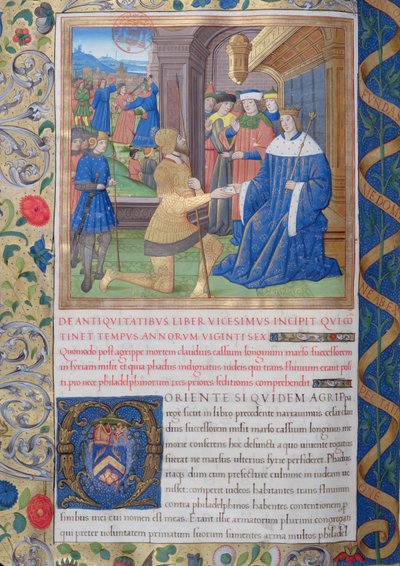 DE ANTIQVITATIBVS LIBER VICESIMVS INCIPIT QVI CŌ
TINET TEMPVS ANNORVM VIGINTI SEX
Quomodo post agrippe mortem claudius cassium longinum marso successorem
in syriam misit et quia phadus indignatus iudeis qui trans flumen erant post
ti pro nece philadelphinorum tres priores seditionis comprehendit
ORIENTE SIQVIDEM AGRIPP
rege sicut in libro precedente narrauimus cesar clau
dius successorem misit marso cassium longinum me
morie conserens hoc defuncti a quo uiuente rogatus
fuerat ne marsus ulterius syrie presideret. Phadus
itaque dum cum prefecture culmine in iudeam ue
nisset: comperit iudeos habitantes trans flumen
contra philadelphinos habentes contentionem, p
finibus mei cui nomen est meas. Erant illic armatorum plurimi congregati
qui preter uoluntatem primatum suorum sumentes arma multos philadel
FVNDA
NE ABEX